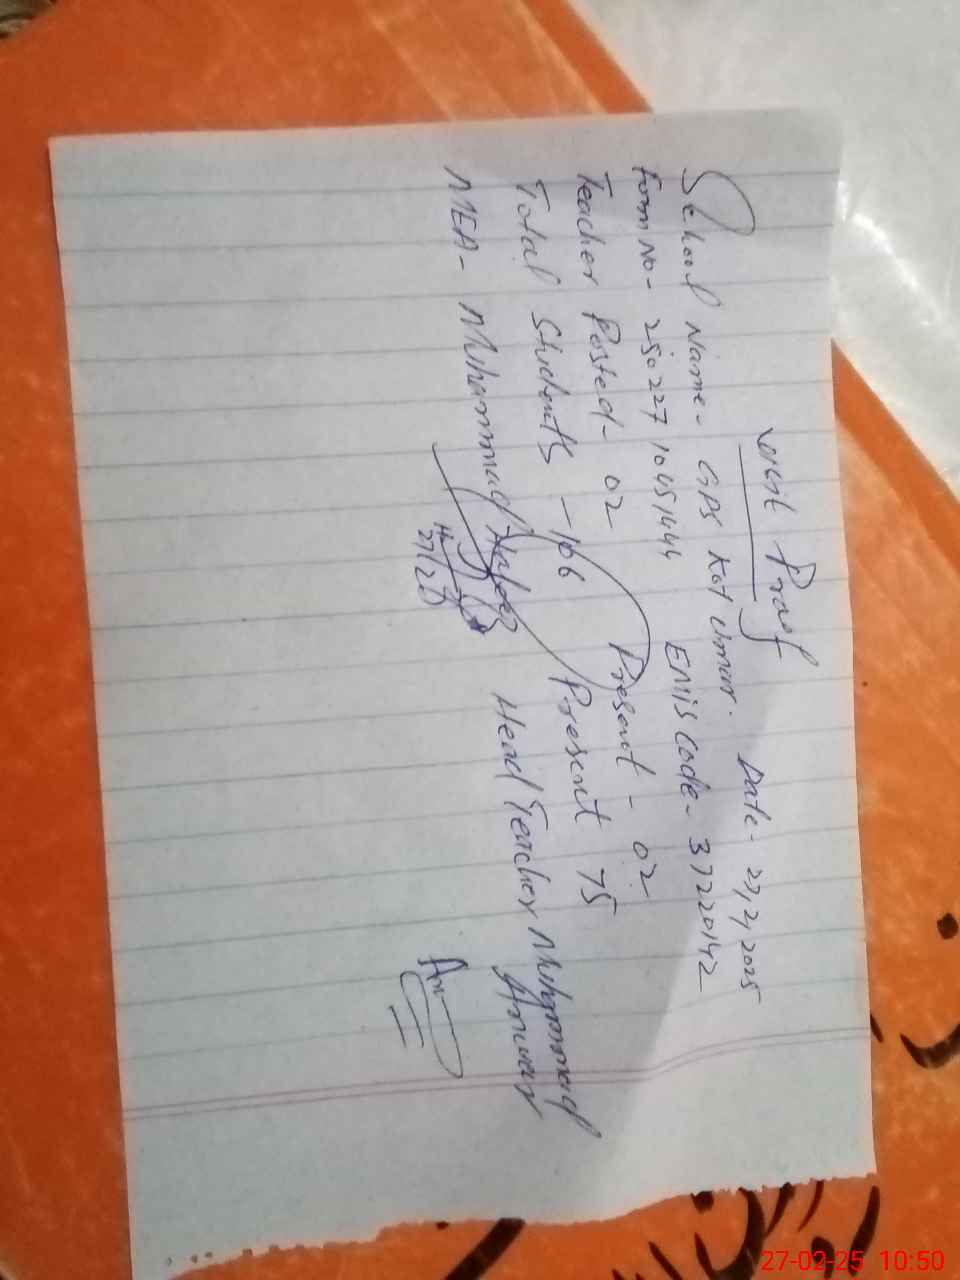 Visit Proof
Date- 27/2/2025
School Name- GPS Kot Umar.
Form No- 250227 10451444 EMIS Code- 37220142
Teacher Posted- 02 Present - 02
Total Students - 106 Present 75
MEA- Muhammad Hafeez Head Teacher Muhammad Anwar
27/2/25
27-02-25 10:50